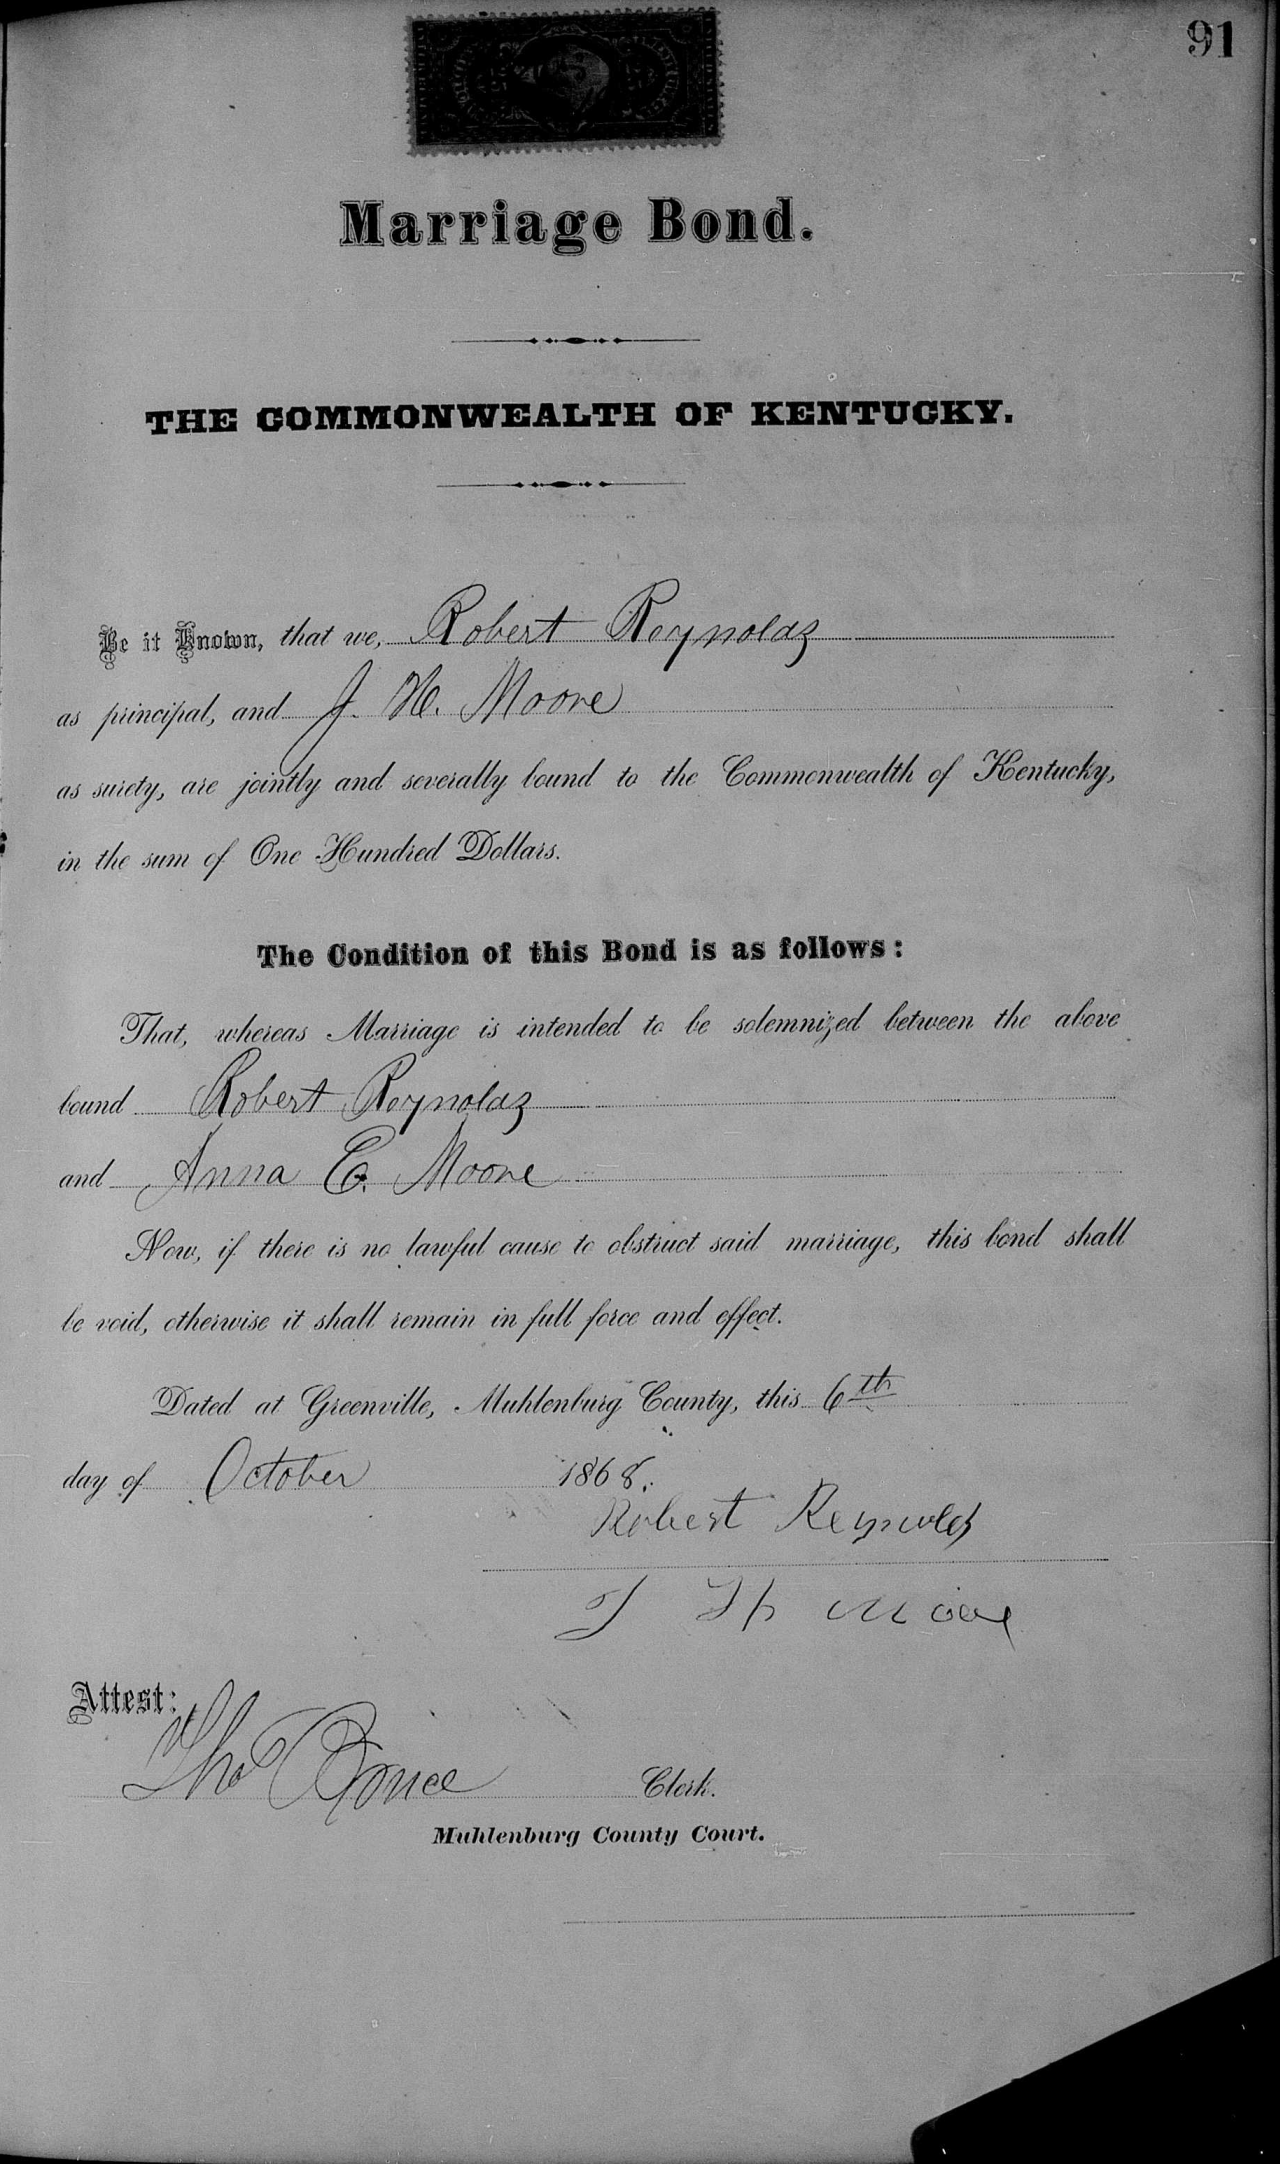 91
Marriage Bond.
THE COMMONWEALTH OF KENTUCKY.
Be it Known, that we, Robert Reynolds
as principal, and J. H. Moore
as surety, are jointly and severally bound to the Commonwealth of Kentucky,
in the sum of One Hundred Dollars.
The Condition of this Bond is as follows:
That, whereas Marriage is intended to be solemnized between the above
bound Robert Reynolds
and Anna E. Moore
Now, if there is no lawful cause to obstruct said marriage, this bond shall
be void, otherwise it shall remain in full force and effect.
Dated at Greenville, Muhlenburg County, this 6th
day of October 1868.
Robert Reynolds
J H Moore
Attest:
Tho Bruce Clerk.
Muhlenburg County Court.